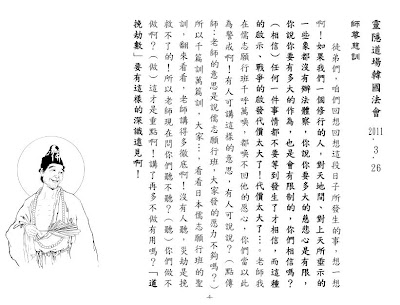 靈隱道場韓國法會 2011.3.26
師尊慈訓
徒弟們，咱們回想回想這段日子所發生的事，想一想
啊！如果我們一個修行的人，對天地間、對上天所垂示的
一些象都沒有辦法體察，你說你要多大的慈悲心是有限，
你說你要有多大的作為，也是會有限制的，你們相信嗎？
（相信）任何一件事情都不要等到發生了才相信，而這種
的啟示、戰爭的啟發代價太大了！代價太大了……。老師我
在儒志願行班千呼萬喚，都喚不回他的愿心，你們當以此
為警戒啊！有人可講這樣的意思，有人可說說？（點傳
師：老師的意思是說儒志願行班，大家發的愿力不夠嗎？）
所以千篇訓萬篇訓，大家…，看看日本儒志願行班的聖
訓，翻來看看，老師講得多徹底啊！沒有人聽，災劫是挽
救不了的！所以老師現在問你們聽不聽？（聽）你們做不
做啊？（做）這才是重點啊！講了再多不做有用嗎？「道
挽劫數」要有這樣的深識遠見啊！